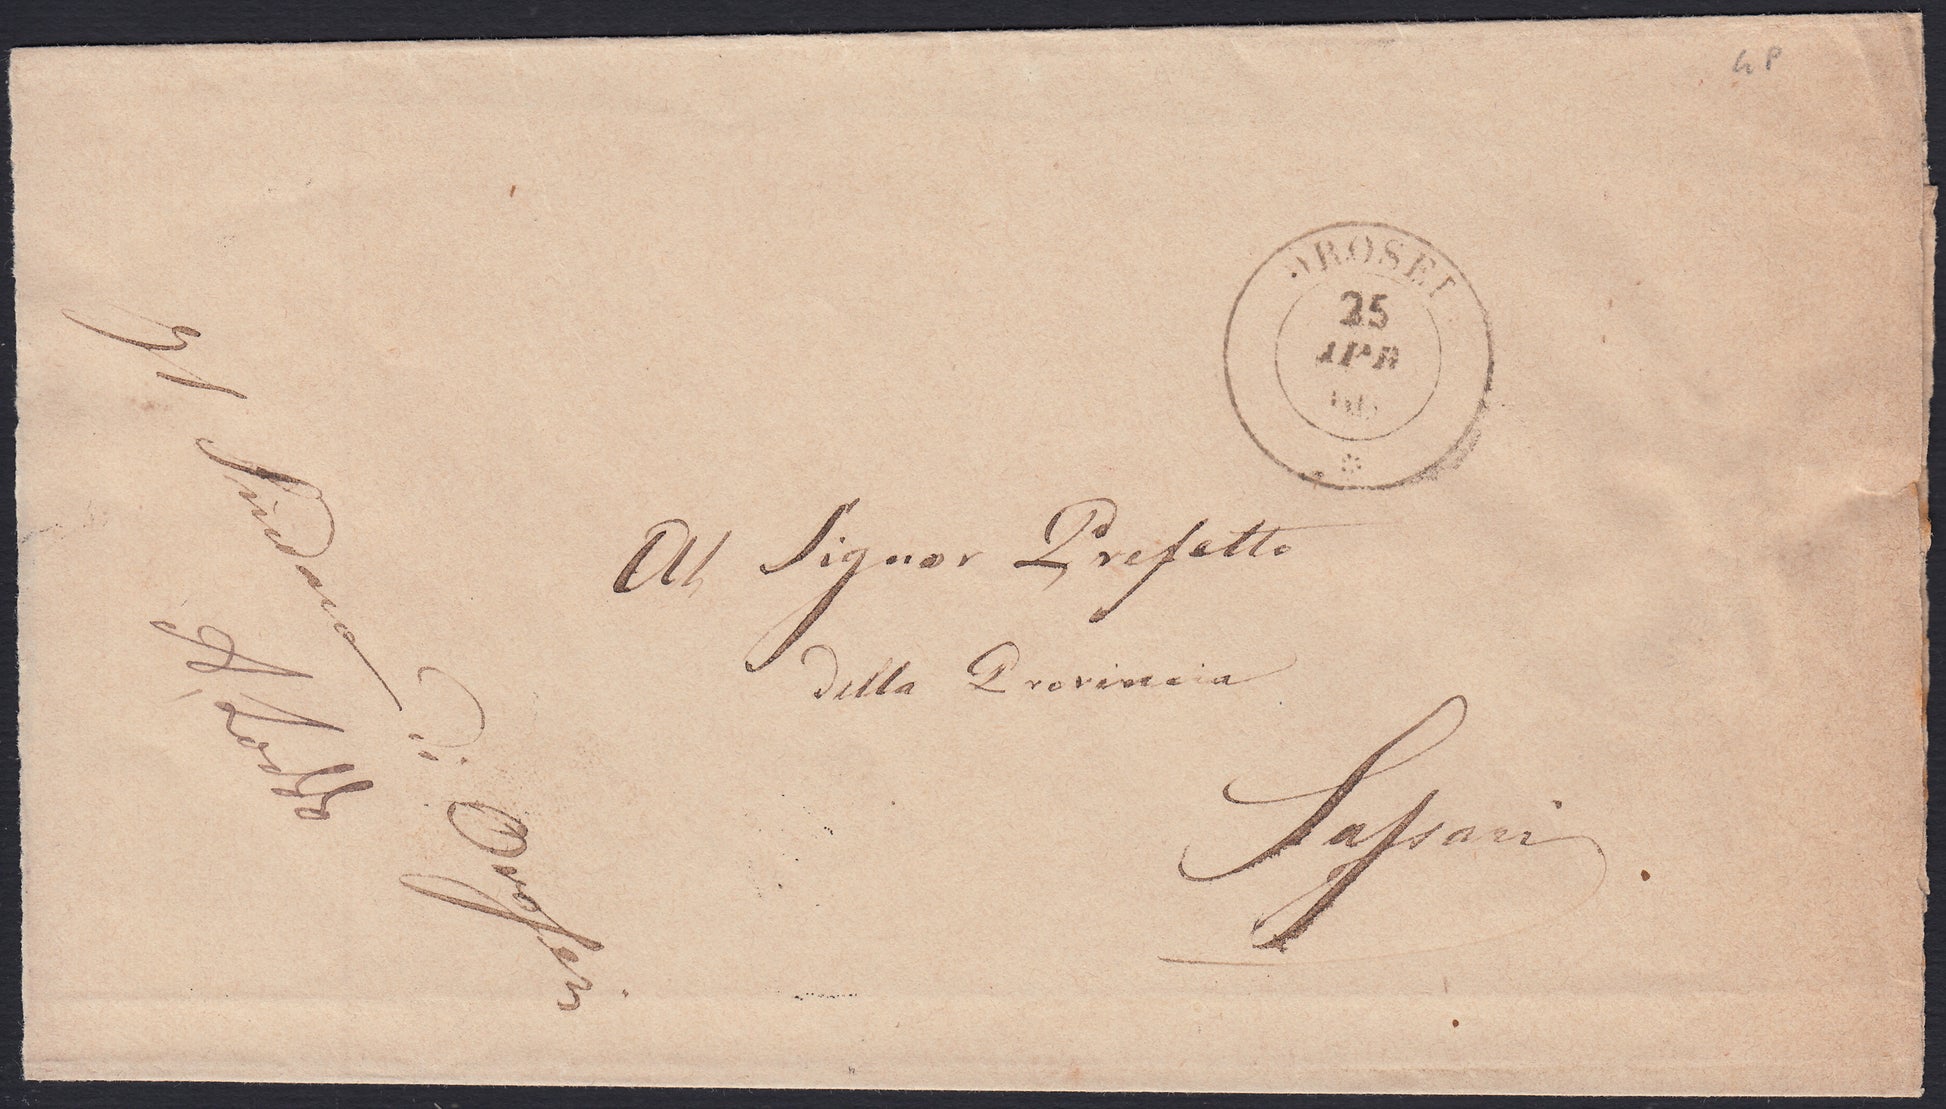 OROSEI
25
APR
Al Signor Prefetto
della Provincia
Sassari
Il Sindaco
di Orosei